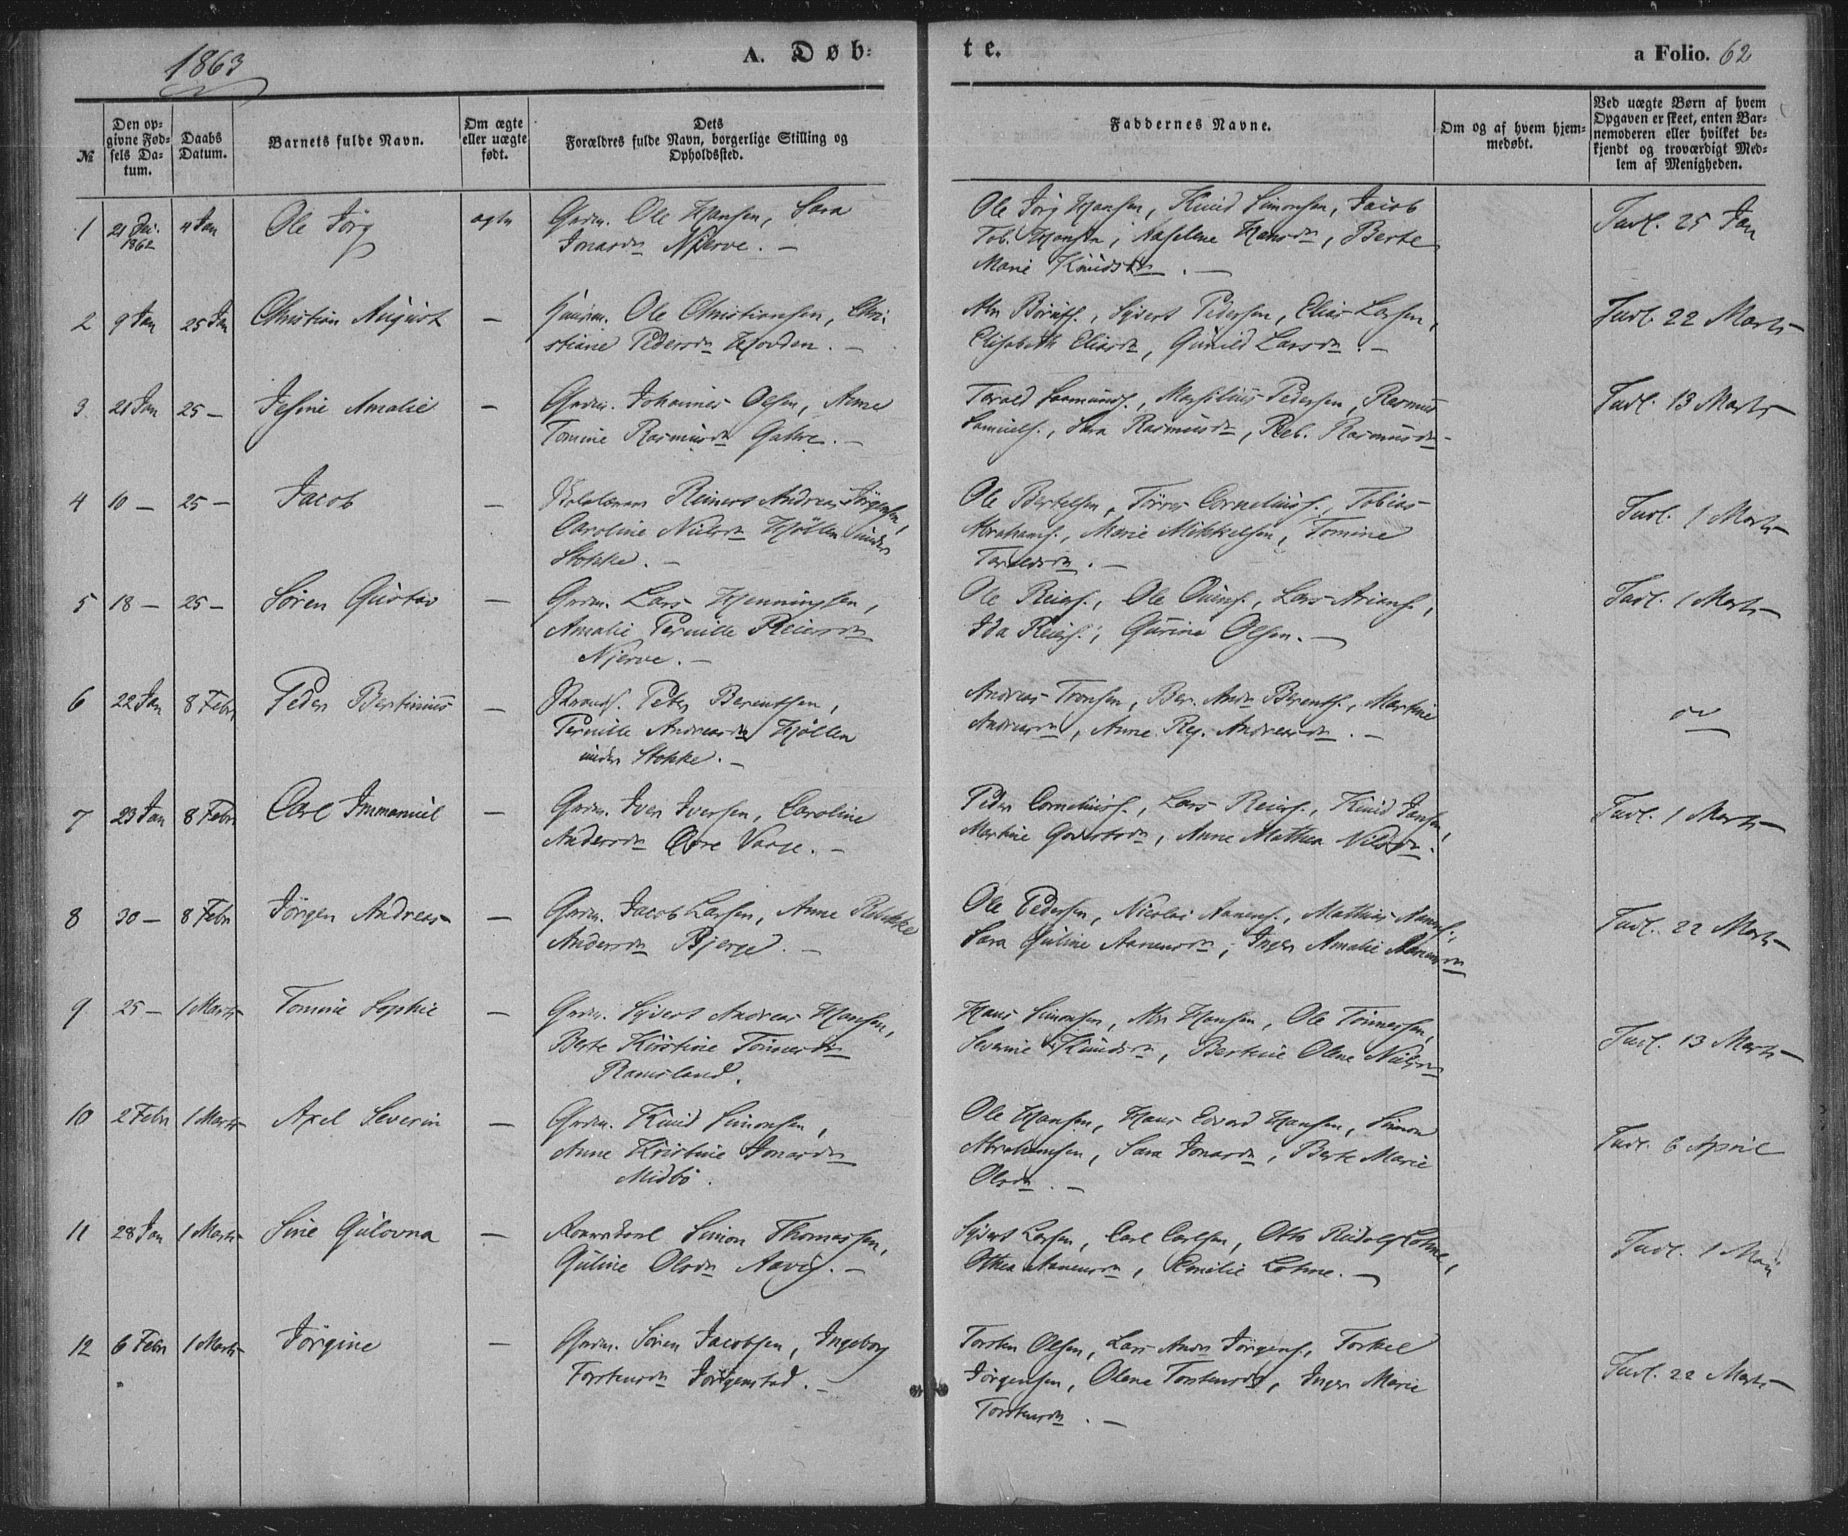 1863
A. Døb-
te.
a Folio. 62
№
Den op-
givne Fød-
sels Da-
tum.
Daabs
Datum.
Barnets fulde Navn.
Om ægte
eller uægte
født.
Dets
Forældres fulde Navn, borgerlige Stilling og
Opholdssted.
Faddernes Navne.
Om og af hvem hjem-
medøbt.
Ved uægte Børn af hvem
Opgaven er skeet, enten Bar-
nemoderen eller hvilket be-
kjendt og troværdigt Med-
lem af Menigheden.
1 21 1862 4 Jan Ole Jörg ægte Grdm. Ole Hansen, Sara
Jonasdr Njerve. —
Ole Jörg Hansen, Knud Simonsen, Jacob
Tob. Hansen, Aaselene Hansdr, Berte
Marie Knudsdr. —
Indl. 25 Jan
2 9 Jan 25 Jan Christian August — Ole Christiansen, Chri-
stiane Pedersdr Hovden. —
Sivert Pedersen, Elias Larsen,
Elisabeth Eliasdr, Gunild Larsdr. —
Indl. 22 Marts
3 21 Jan 25 — Jesine Amalie — Grdm. Johannes Olsen, Anne
Tomine Rasmusdr —
Pedersen, Rasmus
Samuels., Sara Rasmusdr, Reb. Rasmusdr —
Indl. 13 Marts
4 10 — 25 — Jacob — Reinert Andreas Jörgensen,
Caroline Nielsdr Hjöllen under
Stokke. —
Ole Bertelsen, Törres Cornelius., Tobias
Abrahams., Marie Mikkelsen, Tomine
Taraldsdr. —
Indl. 1 Marts
5 18 — 25 — Sören Gustav — Grdm. Lars Henningsen,
Amalie Pernille Reiersdr
Njerve. —
Ole Reiers., Ole Lars
Ida Reiers., Gurine Olsen. —
Indl. 1 Marts
6 22 Jan 8 Febr Peder Bertinius — Peter Berentsen,
Pernille Andreasdr Hjöllen
under Stokke. —
Andreas Tronsen, Ber. Andr. Berents., Martine
Andreasdr, Anne Reg. Andreasdr. —
7 23 Jan 8 Febr Carl Immanuel — Grdm. Iver Iversen, Caroline
Andersdr Övre Vaage. —
Peder Cornelius., Lars Reiers., Knud Jansen,
Martine Govertsdr, Anne Mathea Nilsdr.
Indl. 1 Marts
8 30 — 8 Febr Jörgen Andreas — Grdm. Jacob Larsen, Anne Rebekke
Andersdr Bjerge. —
Ole Pedersen, Nicolai Aanens., Mathias Aanens.,
Sara Guline Aanensdr, Inger Amalie Aanensdr
Indl. 22 Marts
9 25 — 1 Marts Tomine Sophie — Grdm. Sivert Andreas Hansen,
Berte Kirstine Tönnesdr
Ramsland.
Hans Simonsen, Abr Hansen, Ole Tönnesen,
Severine Knudsdr, Bertine Olene Nielsdr
Indl. 13 Marts
10 2 Febr 1 Marts Axel Severin — Grdm. Knud Simonsen,
Anne Kristine Jonasdr
Midbö.
Ole Hansen, Hans Edvard Hansen, Simon
Abrahamsen, Sara Jonasdr, Berte Marie
Olsdr. —
Indl. 6 April
11 28 Jan 1 Marts Sine Gulovna — Simon Thomassen,
Guline Olsdr Aavig. —
Sivert Larsen, Carl Carlsen, Otto Rudolf Lohne,
Othea Aanensdr, Emilie Lohne. —
Indl. 1 Mai
12 6 Febr 1 Marts Jörgine — Grdm. Sören Jacobsen, Ingeborg
Torstensdr Jörgenstad. —
Torsten Olsen, Lars Andr Jörgens., Torkel
Jörgensen, Olene Torstensdr, Inger Marie
Torstensdr. —
Indl. 22 Marts